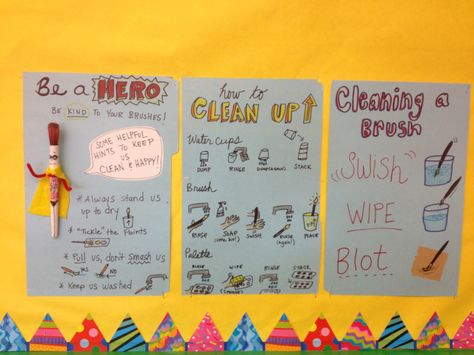 Be a HERO
BE KIND TO YOUR BRUSHES!
SOME HELPFUL
HINTS TO KEEP
US
CLEAN & HAPPY!
* Always stand us
up to dry
* "Tickle" the Paints
* Pull us, don't Smash us
YES
NO
* Keep us washed
how to
CLEAN UP
Water Cups
DUMP
RINSE
DUMP (AGAIN)
STACK
Brush
RINSE
SOAP
SWISH
RINSE
(again)
PLACE
Palette
RINSE
WIPE
(SPONGE)
RINSE
STACK
Cleaning a
Brush
"SWISH"
WIPE
Blot